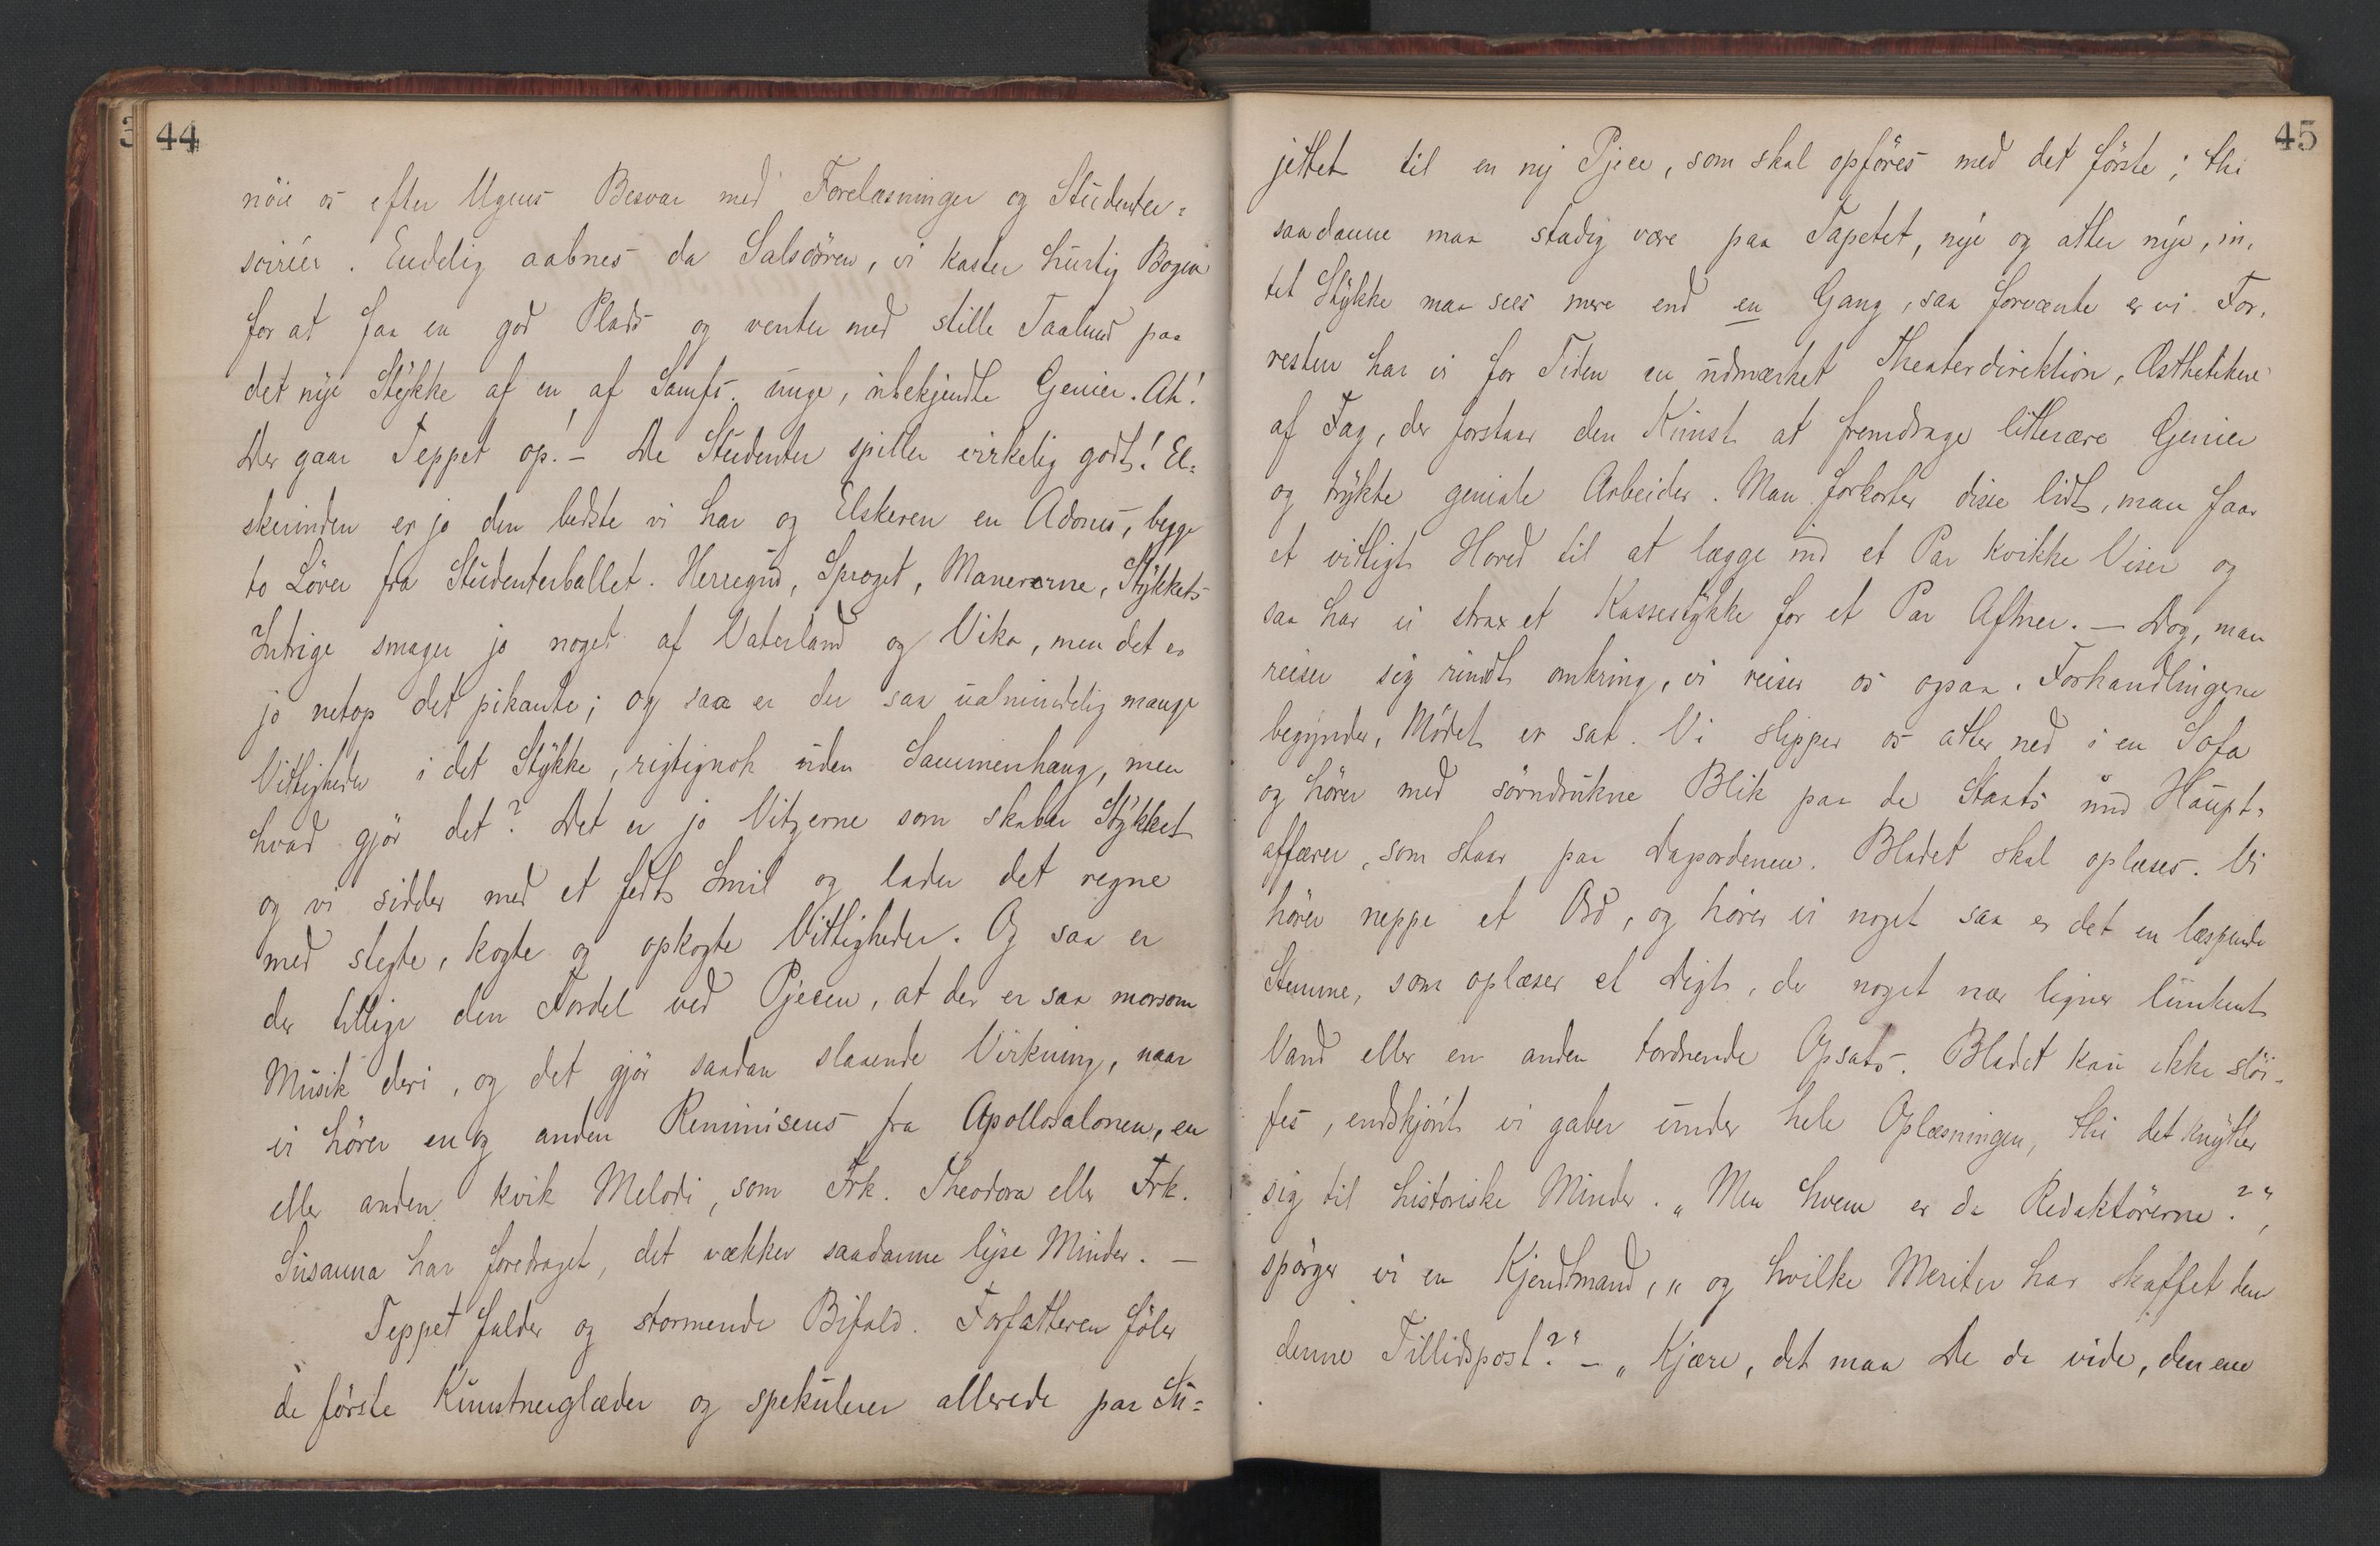 44
nöie os efter Ugens Besvær med Forelæsninger og Studenter=
soiréer. Endelig aabnes da Salsdören, vi kaster hurtig Bogen
for at faa en god Plads og venter med stille Taalmod paa
det nye Stykke af en af Samfs. unge, ubekjendte Genier. Ah!
Der gaar Teppet op! – De Studenter spiller virkelig godt! El=
skerinden er jo den bedste vi har og Elskeren en Adonis, begge
to Löver fra Studenterballet. Herregud, Sproget, Manererne, Stykkets
Intrige smager jo noget af Vaterland og Vika, men det er
jo netop det pikante; og saa er der saa ualmindelig mange
Vittigheder i det Stykke, rigtignok uden Sammenhang, men
hvad gjör det? Det er jo Vitzerne som skaber Stykket
og vi sidder med et fedt Smil og lader det regne
med stegte, kogte og opkogte Vittigheder. Og saa er
der tillige den Fordel ved Pjecen, at der er saa morsom
Musik deri, og det gjör saadan slaaende Virkning, naar
vi hörer en og anden Reminisens fra Apollosalonen, en
eller anden kvik Melodi, som Frk. Theodora eller Frk.
Susanna har foredraget, det vækker saadanne lyse Minder. –
Teppet falder og stormende Bifald. Forfatteren föler
de förste Kunstnerglæder og spekulerer allerede paa Su=
45
jettet til en ny Pjece, som skal opföres med det förste; thi
saadanne maa stadig være paa Tapetet, nye og atter nye, in,
tet Stykke maa sees mere end en Gang, saa forvænte er vi. For,
resten har vi for Tiden en udmærket Theaterdirektion, Æsthetikere
af Fag, der forstaar den Kunst at fremdrage litterære Genier
og trykte geniale Arbeider. Man forkorter disse lidt, man faar
et vittigt Hoved til at lægge ind et Par kvikke Viser og
saa har vi strax et Kassestykke for et Par Aftner. – Dog, man
reiser sig rundt omkring, vi reiser os ogsaa. Forhandlingerne
begynder, Mödet er sat. Vi slipper os atter ned i en Sofa
og hörer med sövndrukne Blik paa de Staats und Haupt,
affærer, som staar paa Dagsordenen. Bladet skal oplæses. Vi
hörer neppe et Ord, og hörer vi noget saa er det en læspende
Stemme, som oplæser et Digt, der noget nær ligner lunkent
Vand eller en anden tordnende Opsats. Bladet kan ikke slöi-
fes, endskjönt vi gaber under hele Oplæsningen, thi det knytter
sig til historiske Minder. „Men hvem er da Redaktörerne?“,
spörger vi en Kjendtmand, „og hvilke Meriter har skaffet dem
denne Tillidspost?“ – „Kjære, det maa De da vide, den ene